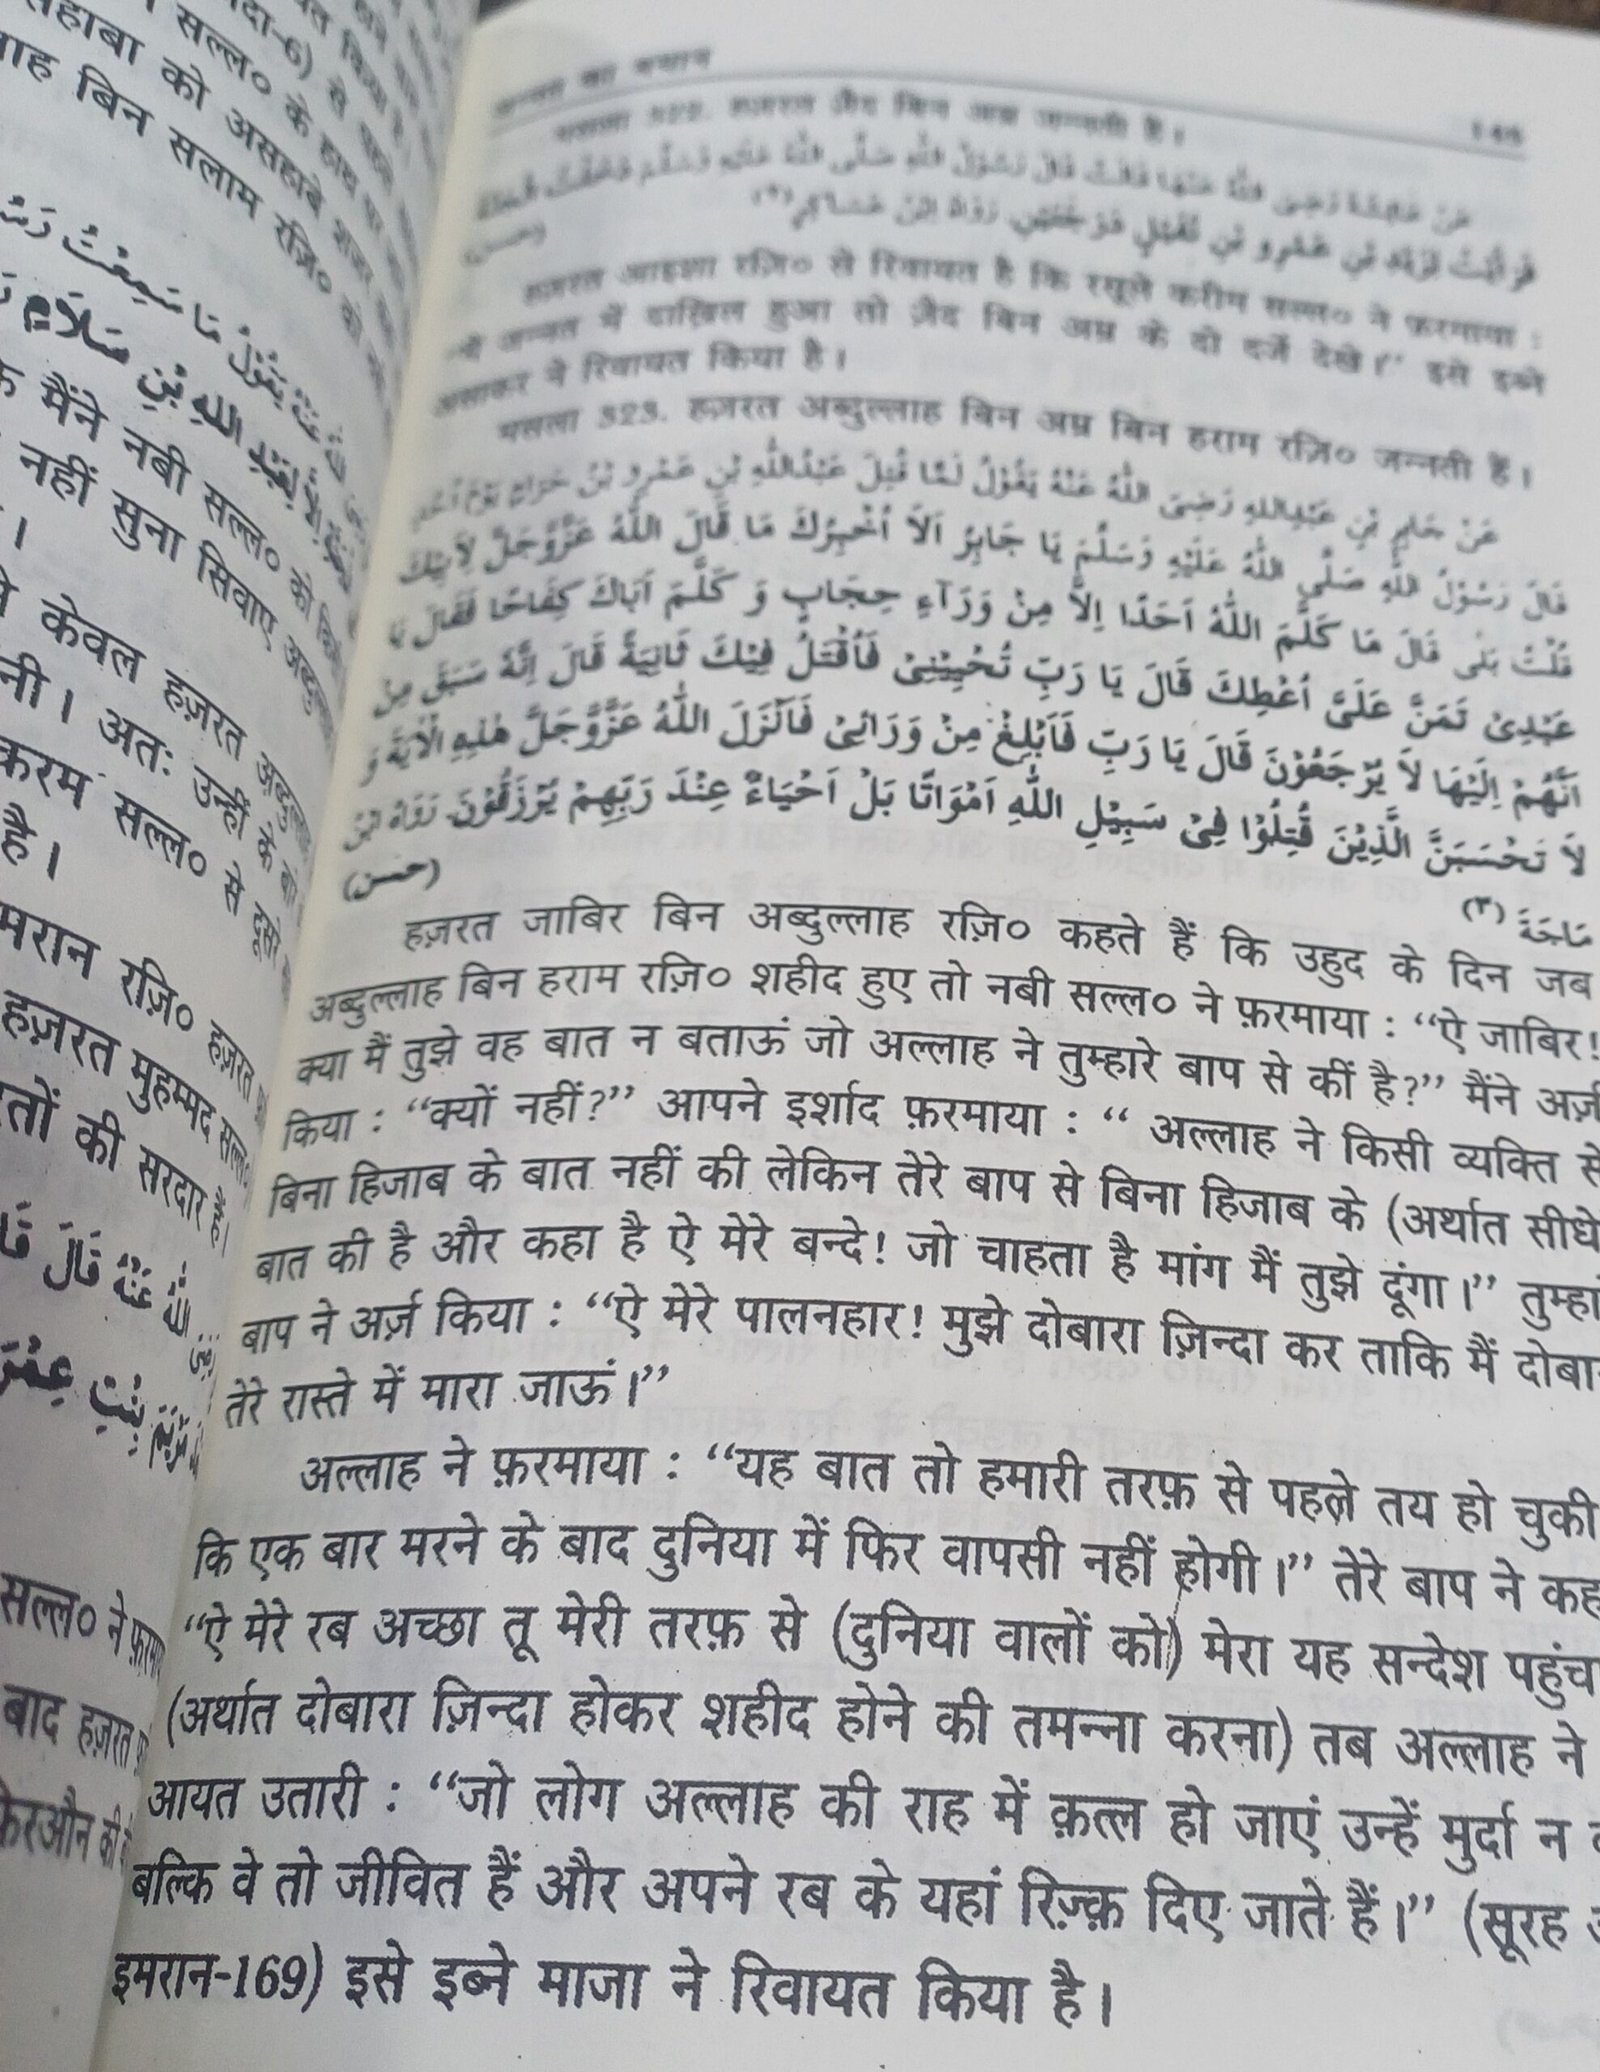 दा-6) से
सल्ल० के हाथ पर
सहाबा को असहाबे शजर
बिन सलाम रज़ि० को
मैंने नबी सल्ल० को
नहीं सुना सिवाए
केवल हज़रत
नी। अतः उन्हीं के बारे
करम सल्ल० से दूसरे
है।
मरान रज़ि० हज़रत
हज़रत मुहम्मद सल्ल०
की सरदार हैं।
اللهُ عَنْهُ قَالَ
بِنْتِ
सल्ल० ने
बाद हज़रत
की
जन्नत का बयान
145
मसला 322. हज़रत ज़ैद बिन अम्र जन्नती हैं।
عَنْ عَائِشَةَ رَضِىَ اللهُ عَنْهَا قَالَتْ قَالَ رَسُوْلُ اللهِ صَلَّى اللهُ عَلَيْهِ وَسَلَّمَ دَخَلْتُ الْجَنَّةَ
(حسن)
हज़रत आइशा रज़ि० से रिवायत है कि रसूले करीम सल्ल० ने फ़रमाया :
“मैं जन्नत में दाख़िल हुआ तो ज़ैद बिन अम्र के दो दर्जे देखे।” इसे इब्ने
असाकर ने रिवायत किया है।
मसला 323. हज़रत अब्दुल्लाह बिन अम्र बिन हराम रज़ि० जन्नती हैं।
عَنْ جَابِرِ بْنِ عَبْدِاللهِ رَضِىَ اللهُ عَنْهُ يَقُوْلُ لَمَّا قُتِلَ عَبْدُاللهِ بْنِ عَمْرِو بْنِ حَرَامٍ يَوْمَ اُحُدٍ
قَالَ رَسُوْلُ اللهِ صَلَّى اللهُ عَلَيْهِ وَسَلَّمَ يَا جَابِرُ اَلاَ اُخْبِرُكَ مَا قَالَ اللهُ عَزَّوَجَلَّ لِاَبِيْكَ
قُلْتُ بَلٰى قَالَ مَا كَلَّمَ اللهُ اَحَدًا اِلاَّ مِنْ وَرَآءِ حِجَابٍ وَ كَلَّمَ اَبَاكَ كِفَاحًا فَقَالَ يَا
عَبْدِىْ تَمَنَّ عَلَىَّ اُعْطِكَ قَالَ يَا رَبِّ تُحْيِيْنِىْ فَاُقْتَلُ فِيْكَ ثَانِيَةً قَالَ اِنَّهُ سَبَقَ مِنْ
اَنَّهُمْ اِلَيْهَا لاَ يَرْجَعُوْنَ قَالَ يَا رَبِّ فَاَبْلِغْ مِنْ وَرَائِىْ فَاَنْزَلَ اللهُ عَزَّوَجَلَّ هٰذِهِ الْاٰيَةَ وَ
لاَ تَحْسَبَنَّ الَّذِيْنَ قُتِلُوْا فِىْ سَبِيْلِ اللهِ اَمْوَاتًا بَلْ اَحْيَاءٌ عِنْدَ رَبِّهِمْ يُرْزَقُوْنَ رَوَاهُ ابْنُ
مَاجَةَ (٣)
(حسن)
हज़रत जाबिर बिन अब्दुल्लाह रज़ि० कहते हैं कि उहुद के दिन जब
अब्दुल्लाह बिन हराम रज़ि० शहीद हुए तो नबी सल्ल० ने फ़रमाया : “ऐ जाबिर!
क्या मैं तुझे वह बात न बताऊं जो अल्लाह ने तुम्हारे बाप से कीं है?” मैंने अर्ज़
किया : “क्यों नहीं?” आपने इर्शाद फ़रमाया : “ अल्लाह ने किसी व्यक्ति से
बिना हिजाब के बात नहीं की लेकिन तेरे बाप से बिना हिजाब के (अर्थात सीधे
बात की है और कहा है ऐ मेरे बन्दे! जो चाहता है मांग मैं तुझे दूंगा।” तुम्हा
बाप ने अर्ज़ किया : “ऐ मेरे पालनहार! मुझे दोबारा ज़िन्दा कर ताकि मैं दोबा
तेरे रास्ते में मारा जाऊं।”
अल्लाह ने फ़रमाया : “यह बात तो हमारी तरफ़ से पहले तय हो चुकी
कि एक बार मरने के बाद दुनिया में फिर वापसी नहीं होगी।” तेरे बाप ने कह
“ऐ मेरे रब अच्छा तू मेरी तरफ़ से (दुनिया वालों को) मेरा यह सन्देश पहुंच
(अर्थात दोबारा ज़िन्दा होकर शहीद होने की तमन्ना करना) तब अल्लाह ने
आयत उतारी : “जो लोग अल्लाह की राह में क़त्ल हो जाएं उन्हें मुर्दा न
बल्कि वे तो जीवित हैं और अपने रब के यहां रिज़्क़ दिए जाते हैं।” (सूरह
इमरान-169) इसे इब्ने माजा ने रिवायत किया है।